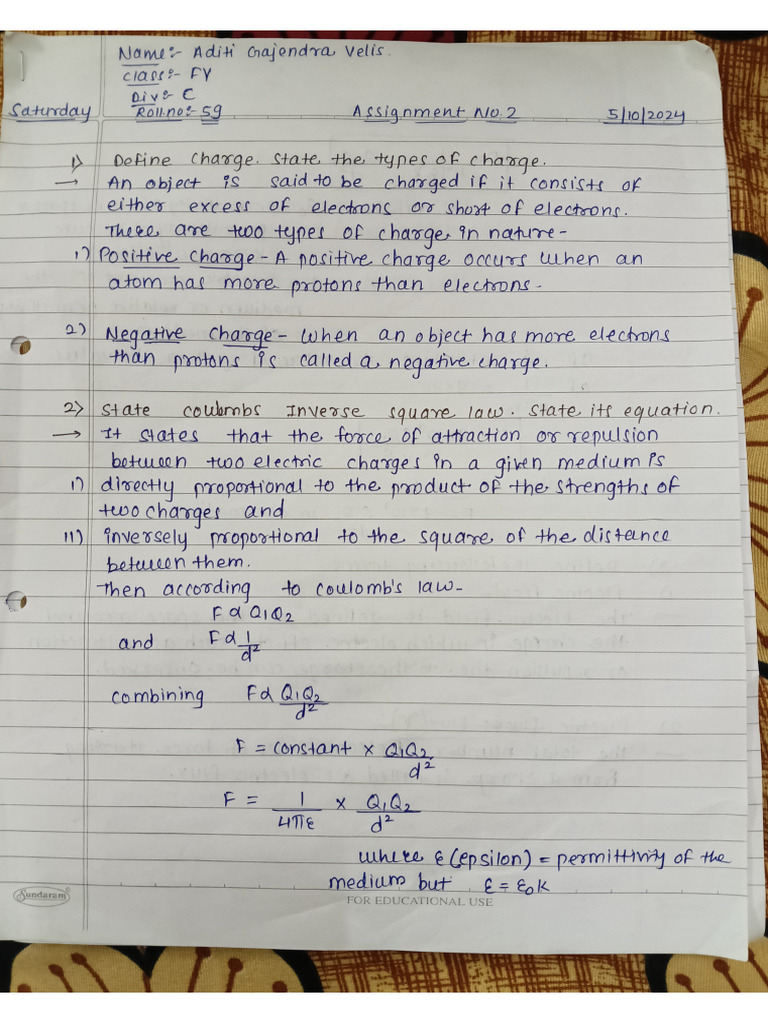 Name:- Aditi Gajendra Velis.
Class:- FY
Div:- C
Saturday Roll.no:- 59 Assignment No. 2 5/10/2024
1) Define Charge. State the types of charge.
→ An object is said to be charged if it consists of
either excess of electrons or short of electrons.
There are two types of charge in nature-
1) Positive Charge - A positive charge occurs when an
atom has more protons than electrons.
2) Negative Charge - When an object has more electrons
than protons is called a negative charge.
2) State coulombs Inverse square law. State its equation.
→ It states that the force of attraction or repulsion
between two electric charges in a given medium is
i) directly proportional to the product of the strengths of
two charges and
ii) inversely proportional to the square of the distance
between them.
Then according to coulomb's law-
F α Q₁Q₂
and F α 1/d²
combining F α Q₁Q₂/d²
F = constant × Q₁Q₂/d²
F = 1/4πε × Q₁Q₂/d²
where ε (epsilon) = permittivity of the
medium but ε = ε₀k
Sundaram®
FOR EDUCATIONAL USE